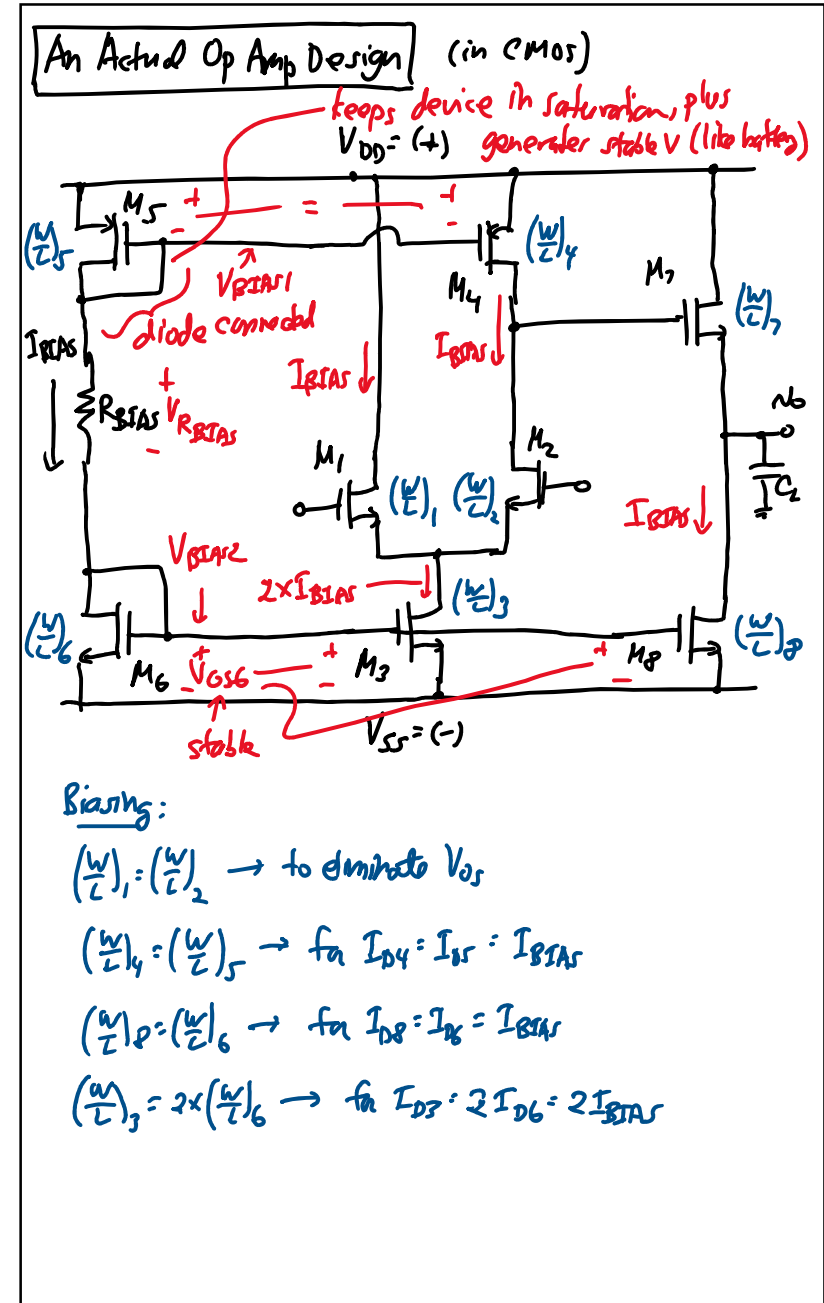 An Actual Op Amp Design (in CMOS)
keeps device in saturation, plus
generates stable V (like battery)
V_DD = (+)
M5
+ = +
- -
(W/L)5
(W/L)4
V_BIAS1
M4
M7
(W/L)7
diode connected
I_BIAS
I_BIAS
I_BIAS
+
R_BIAS V_RBIAS
-
M1
M2
(W/L)1 (W/L)2
No
C_L
I_BIAS
V_BIAS2
2×I_BIAS
(W/L)3
(W/L)6
M6
+ V_GS6 -
+ -
M3
+ -
M8
(W/L)8
stable
V_SS = (-)
Biasing:
(W/L)1 = (W/L)2 → to eliminate V_OS
(W/L)4 = (W/L)5 → for I_D4 = I_D5 = I_BIAS
(W/L)8 = (W/L)6 → for I_D8 = I_D6 = I_BIAS
(W/L)3 = 2×(W/L)6 → for I_D3 = 2I_D6 = 2I_BIAS